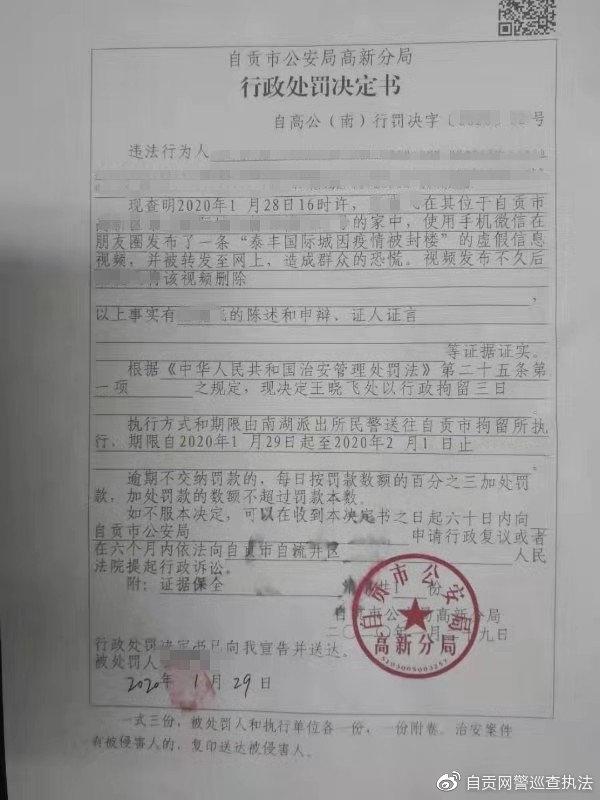 自贡市公安局高新分局
行政处罚决定书
自高公（南）行罚决字〔
号
违法行为人
现查明2020年1月28日16时许，
在其位于自贡市
的家中，使用手机微信在
朋友圈发布了一条“泰丰国际城因疫情被封楼”的虚假信息
视频，并被转发至网上，造成群众的恐慌。视频发布不久后
将该视频删除
，
以上事实有
的陈述和申辩、证人证言
等证据证实。
根据《中华人民共和国治安管理处罚法》第二十五条第
一项 之规定，现决定王晓飞处以行政拘留三日
。
执行方式和期限由南湖派出所民警送往自贡市拘留所执
行，期限自2020年1月29日起至2020年2月1日止
。
逾期不交纳罚款的，每日按罚款数额的百分之三加处罚
款，加处罚款的数额不超过罚款本数。
如不服本决定，可以在收到本决定书之日起六十日内向
自贡市公安局 申请行政复议或者
在六个月内依法向自贡市自流井区 人民
法院提起行政诉讼。
附：证据保全 清单 份
自贡市公安局高新分局
二〇二〇年一月二十九日
自贡市公安局
高新分局
5103005003257
行政处罚决定书已向我宣告并送达。
被处罚人
2020年1月29日
一式三份，被处罚人和执行单位各一份，一份附卷。治安案件
有被侵害人的，复印送达被侵害人。
@自贡网警巡查执法